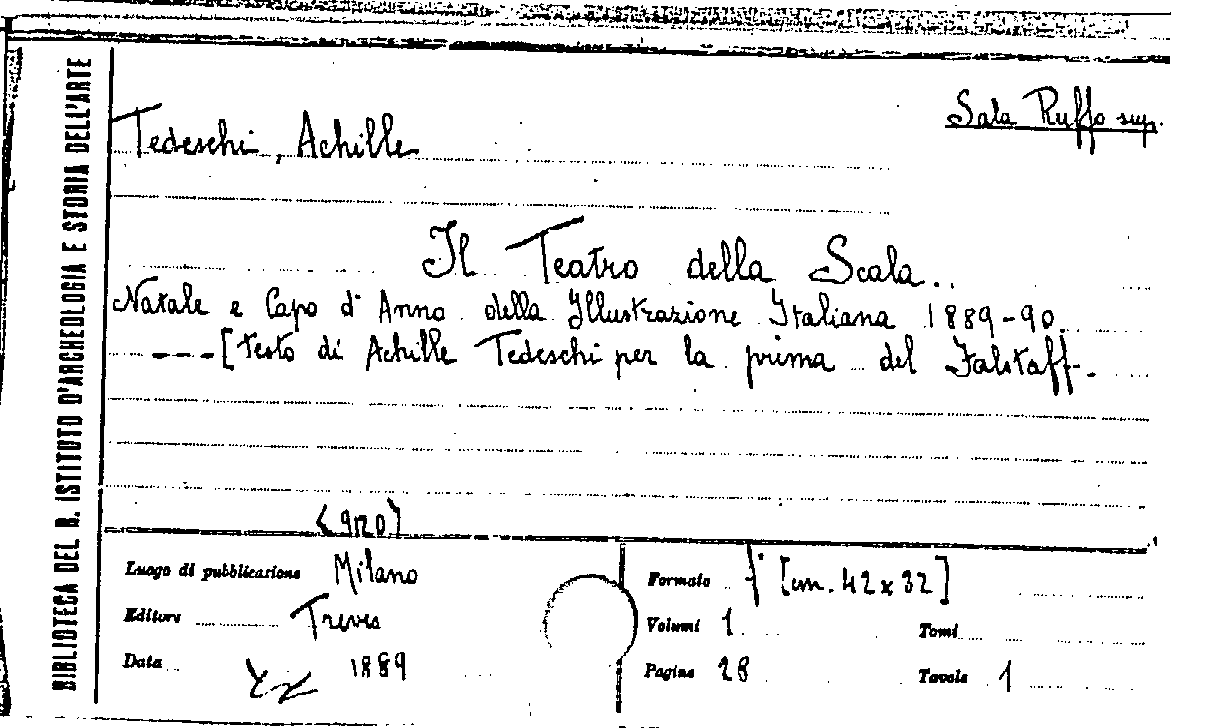 BIBLIOTECA DEL R. ISTITUTO D'ARCHEOLOGIA E STORIA DELL'ARTE
Sala Ruffo sup.
Tedeschi, Achille
Il Teatro della Scala..
Natale e Capo d'Anno della Illustrazione Italiana 1889-90.
---[testo di Achille Tedeschi per la prima del Falstaff.
Luogo di pubblicazione Milano
Editore Treves
Data 1889
Formato f° [cm. 42 x 32]
Volumi 1
Tomi
Pagine 28
Tavole 1